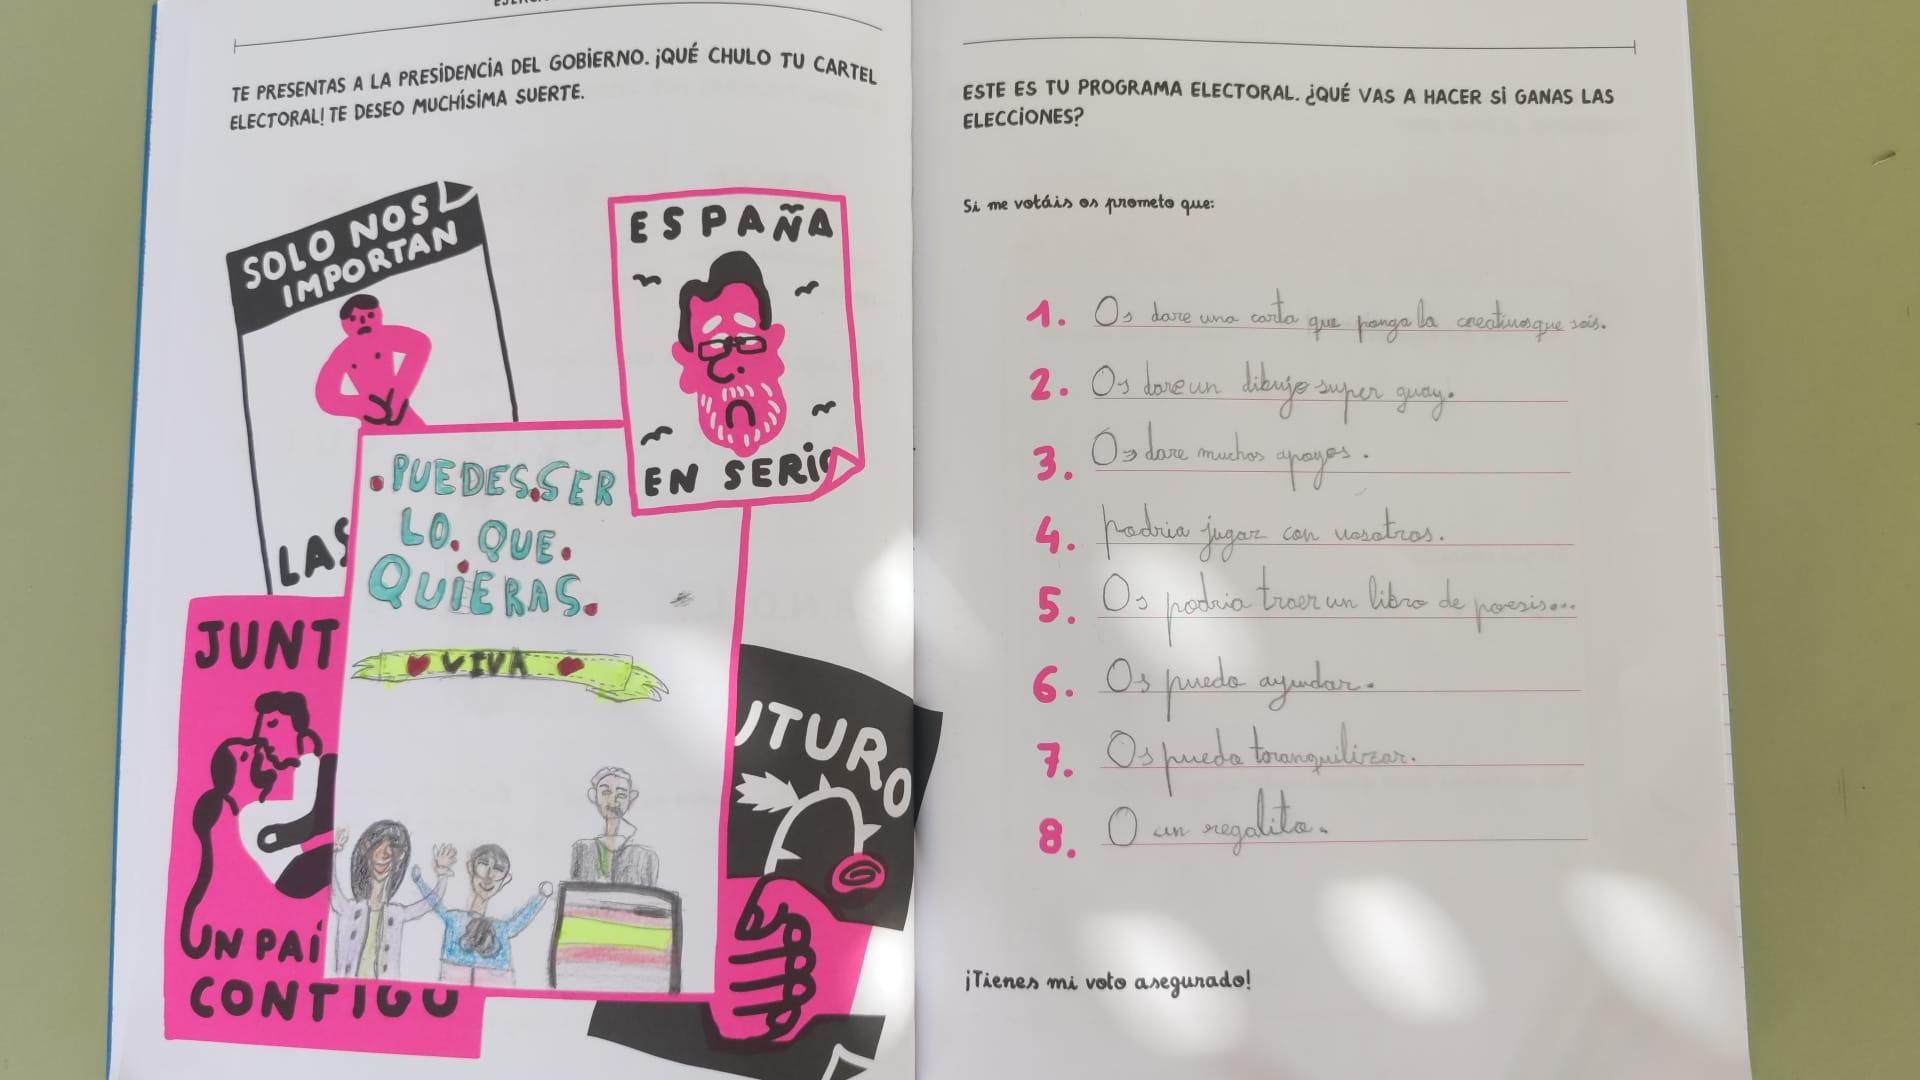 TE PRESENTAS A LA PRESIDENCIA DEL GOBIERNO. ¡QUÉ CHULO TU CARTEL
ELECTORAL! TE DESEO MUCHÍSIMA SUERTE.
SOLO NOS
IMPORTAN
LAS
ESPAÑA
EN SERIO
.PUEDES.SER
LO. QUE.
QUIERAS.
VIVA
JUNT
UN PAÍ
CONTIGO
UTURO
ESTE ES TU PROGRAMA ELECTORAL. ¿QUÉ VAS A HACER SI GANAS LAS
ELECCIONES?
Si me votáis os prometo que:
1. Os dare una carta que ponga lo creativos que sois.
2. Os dare un dibujo super guay.
3. Os dare muchos apoyos.
4. podria jugar con vosotros.
5. Os podria traer un libro de poesis...
6. Os puedo ayudar.
7. Os puedo tranquilizar.
8. O un regalito.
¡Tienes mi voto asegurado!